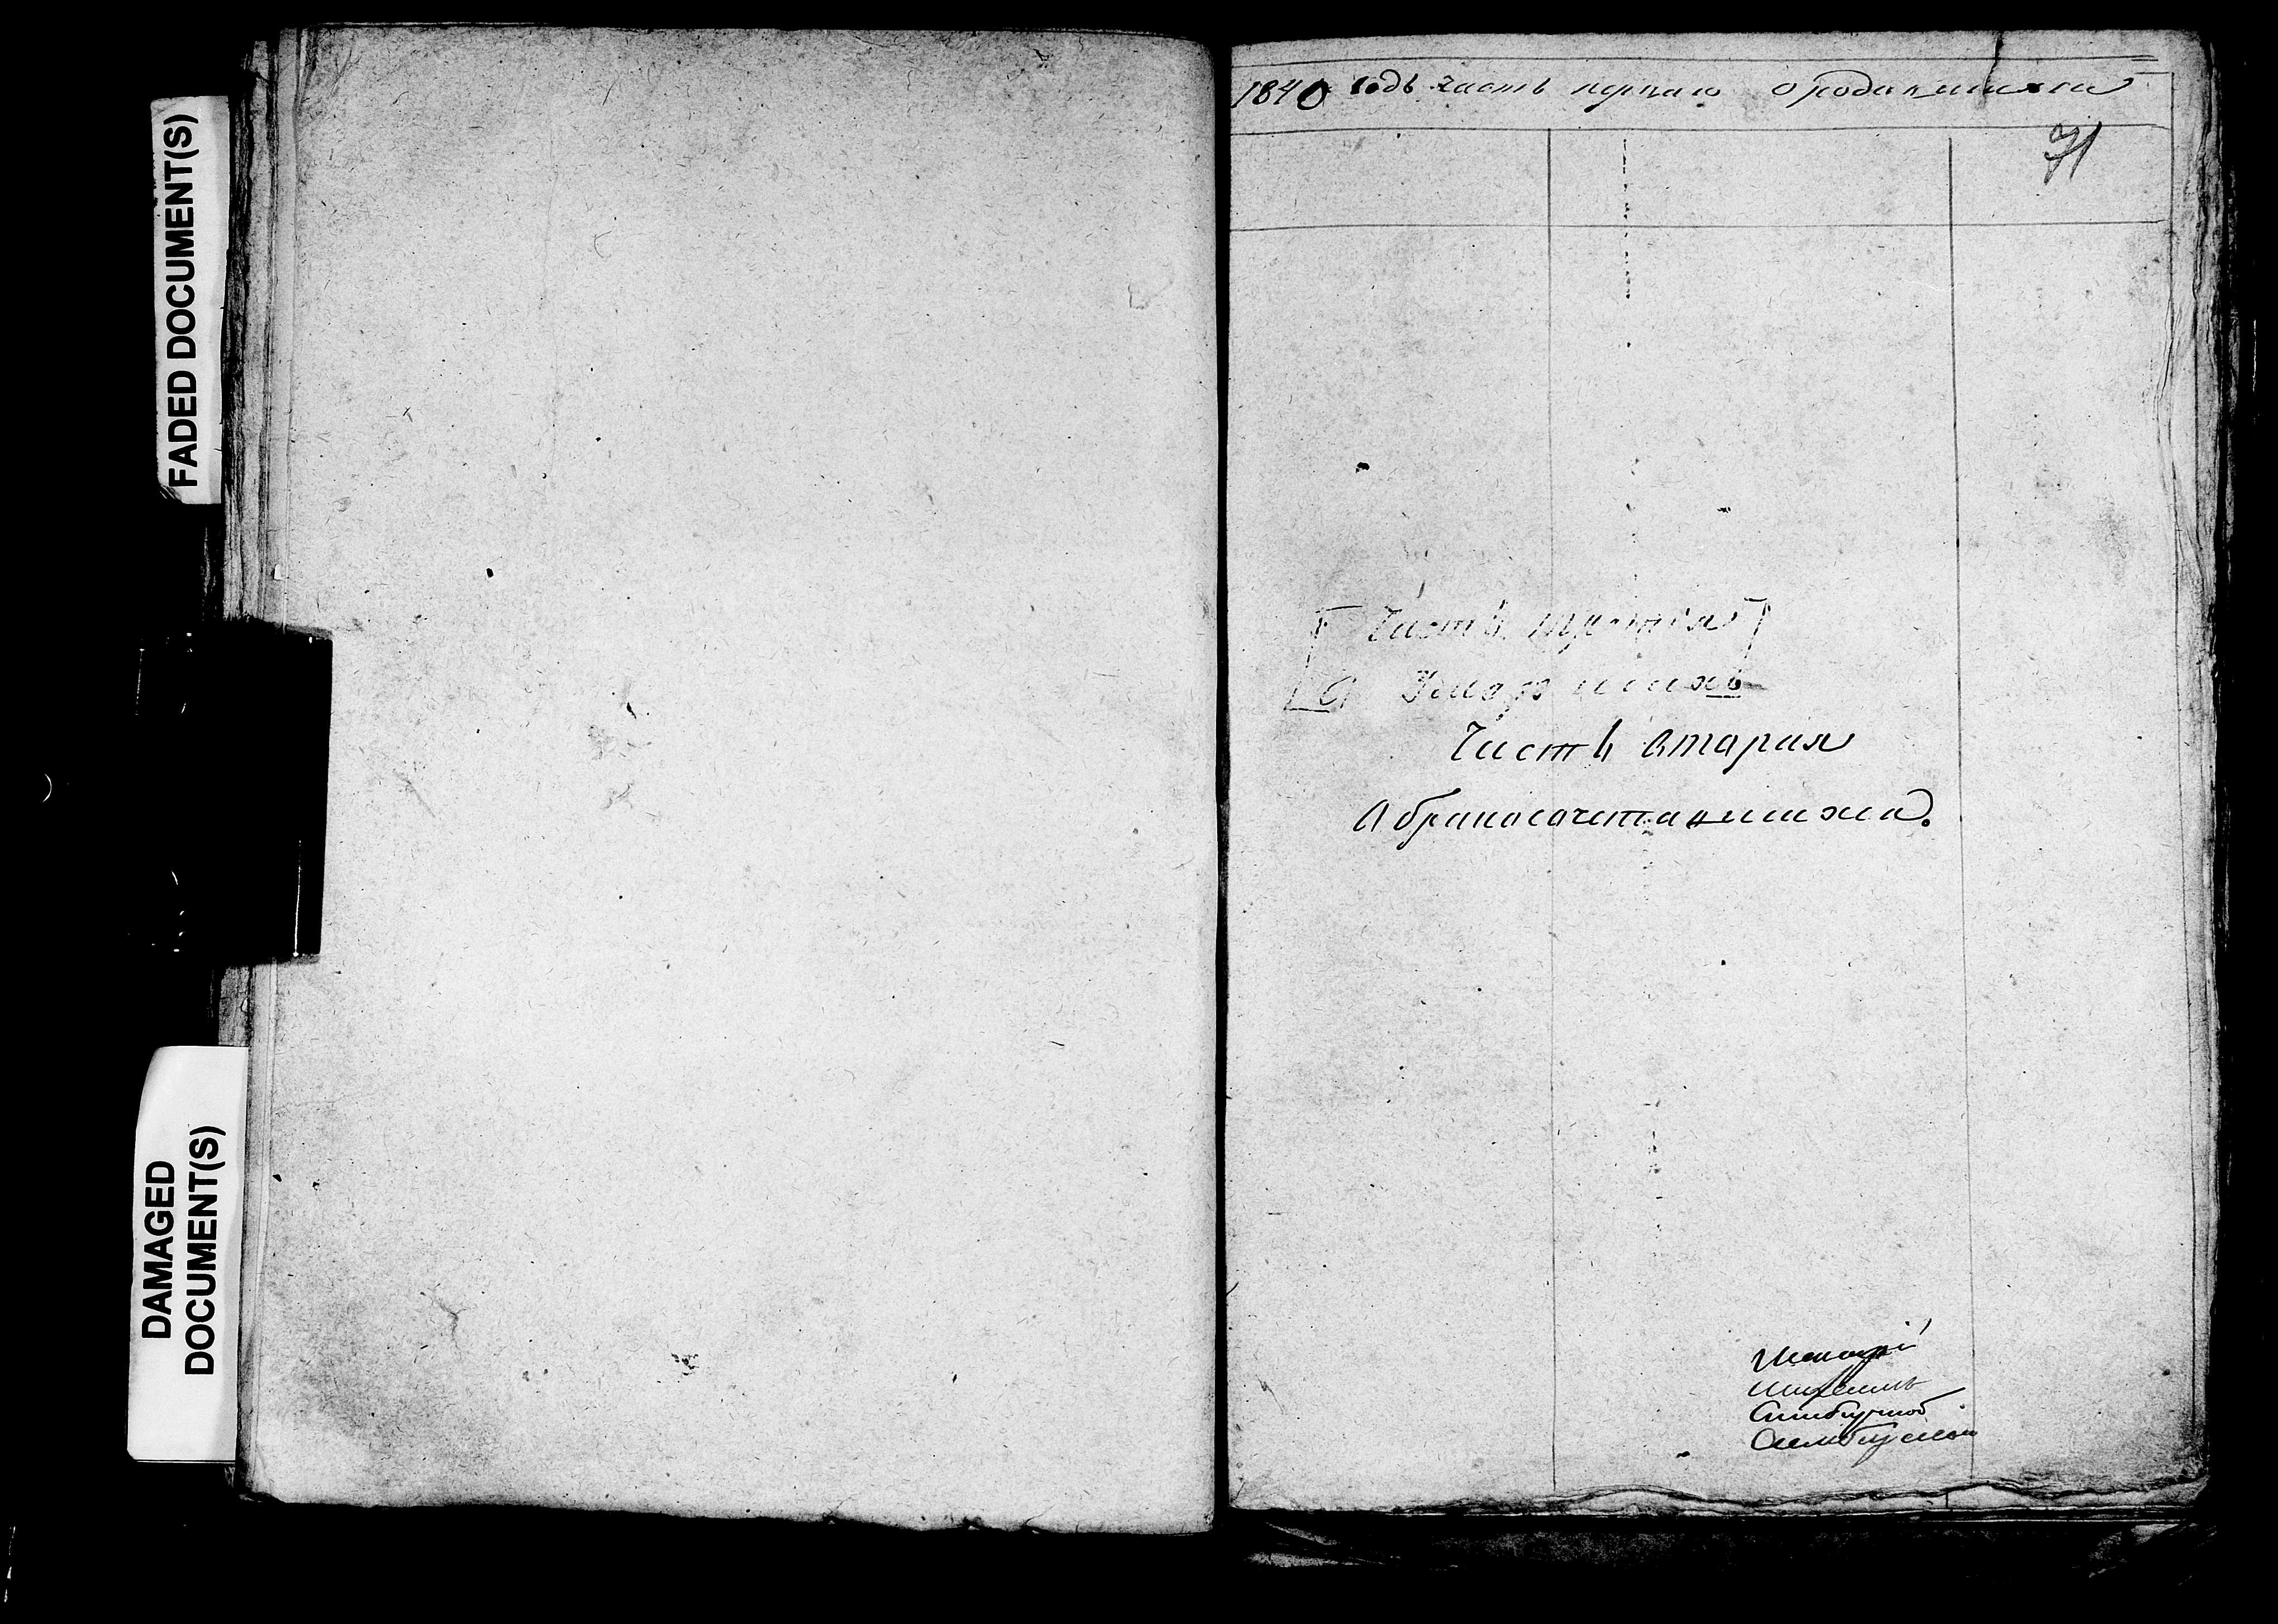 FADED DOCUMENT(S)
DAMAGED
DOCUMENT(S)
1840 годъ часть первая о родившихся
71
Часть третія
О Умерших
Часть вторая
О бракосочетавшихся.